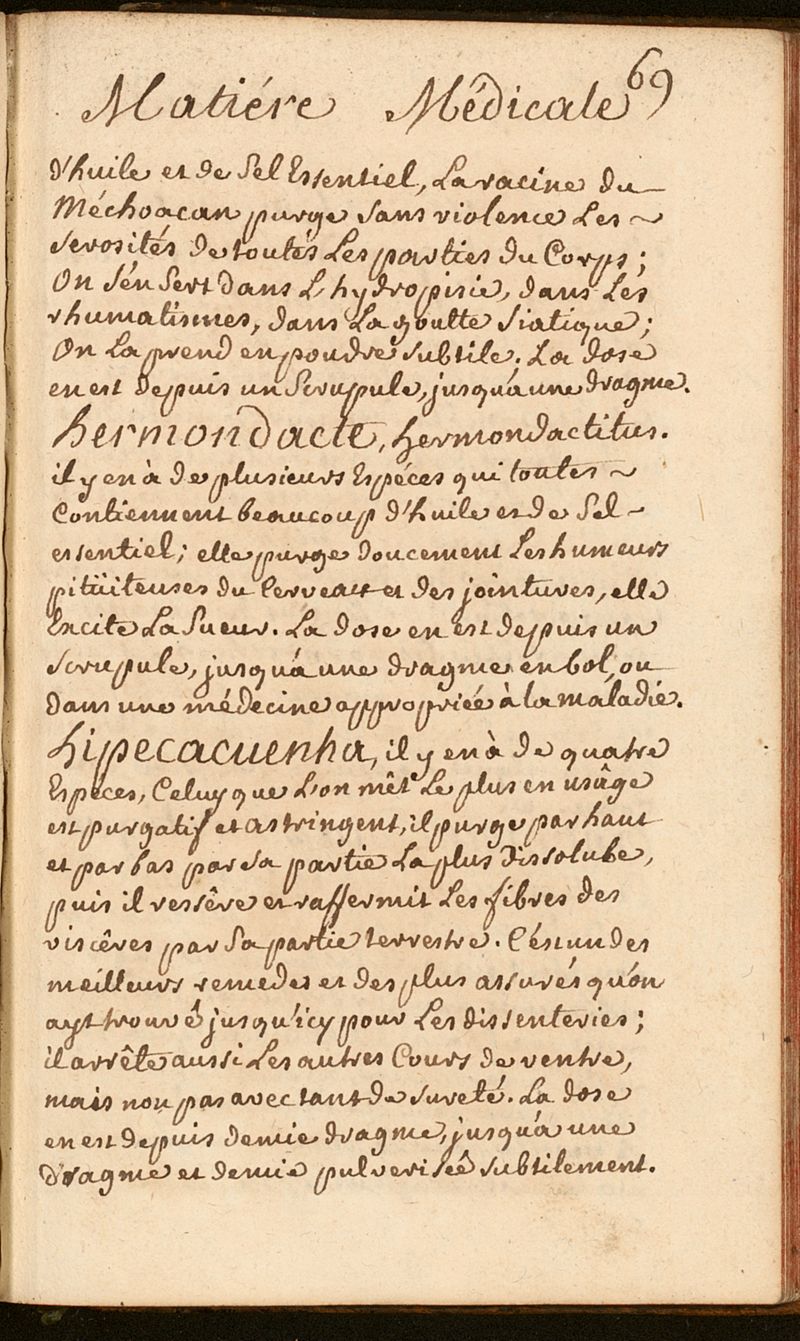 Matiére Médicale 69
d'huile et de Sel Essentiel, La racine du
Méchoacan purge sans violence Les ~
serosités de toutés Les parties du Corps ;
On s'én Sert dans L'hydropisie, dans Les
rhumatismes, dans La goutte Siatique ;
On La prend en poudre subtile. La dose
en est depuis un Scrupule, jusqu'á une dragme.
hermondacte, hermondactitus.
il y en à de plusieurs Espéces qui toutes ~
Contiennent beaucoup d'huile et de Sel ~
essentiel ; elle purge doucement Les humeurs
pitüiteuses du Cerveau et des jointures, elle
Encite La Sueur. La dose en est depuis un
scrupule, jusqu'á une dragme en bol, ou
dans une médecine appropriée à la maladie.
hipecacuenha, il y en à de quatre
Espéces, Celuy que L'on mêt Le plus en usâge
est purgatif et astringent, il purge par haut
et par bas par sa partie La plus dissoluble,
puis il ressêre et raffermit Les fibres des
viscêres par Sa partie terrestre. C'ést un des
meilleurs remedes et des plus assurés qu'on
ayt trouvé jusqu'icy pour Les dissenteries ;
il arrête aussi Les autres Cours de ventre,
mais non pas avec tant de sureté. La dose
en est depuis demie dragme, jusqu'á une
dragme et demie pulverisée subtilement.